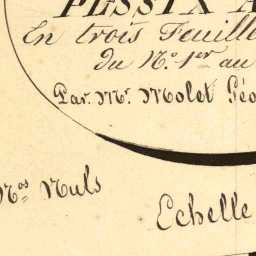 PESSEX A
En trois Feuille
du N.º 1.er au
Par. Mr. Molet Géo
Nos Nuls
Echelle